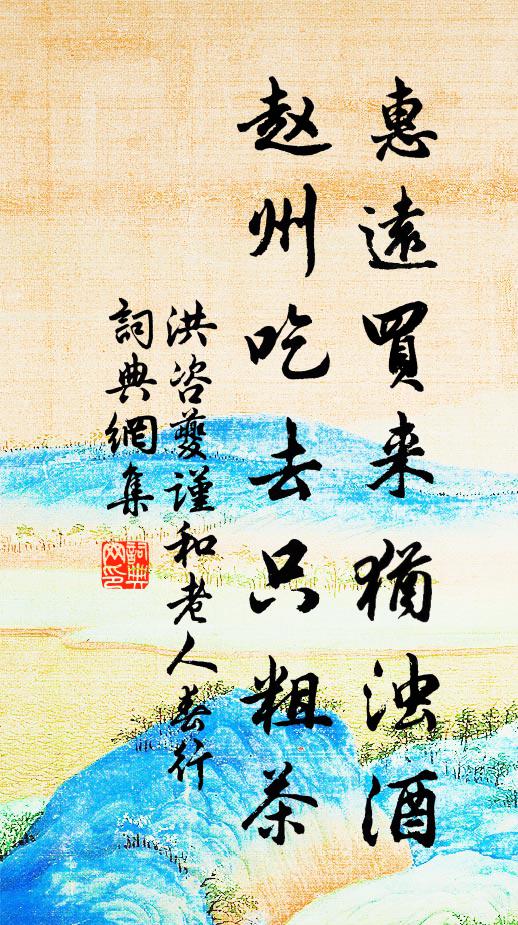 惠遠買来猶浊酒
赵州吃去只粗茶
洪咨夔谨和老人春行
詞典網集
詞典
网印